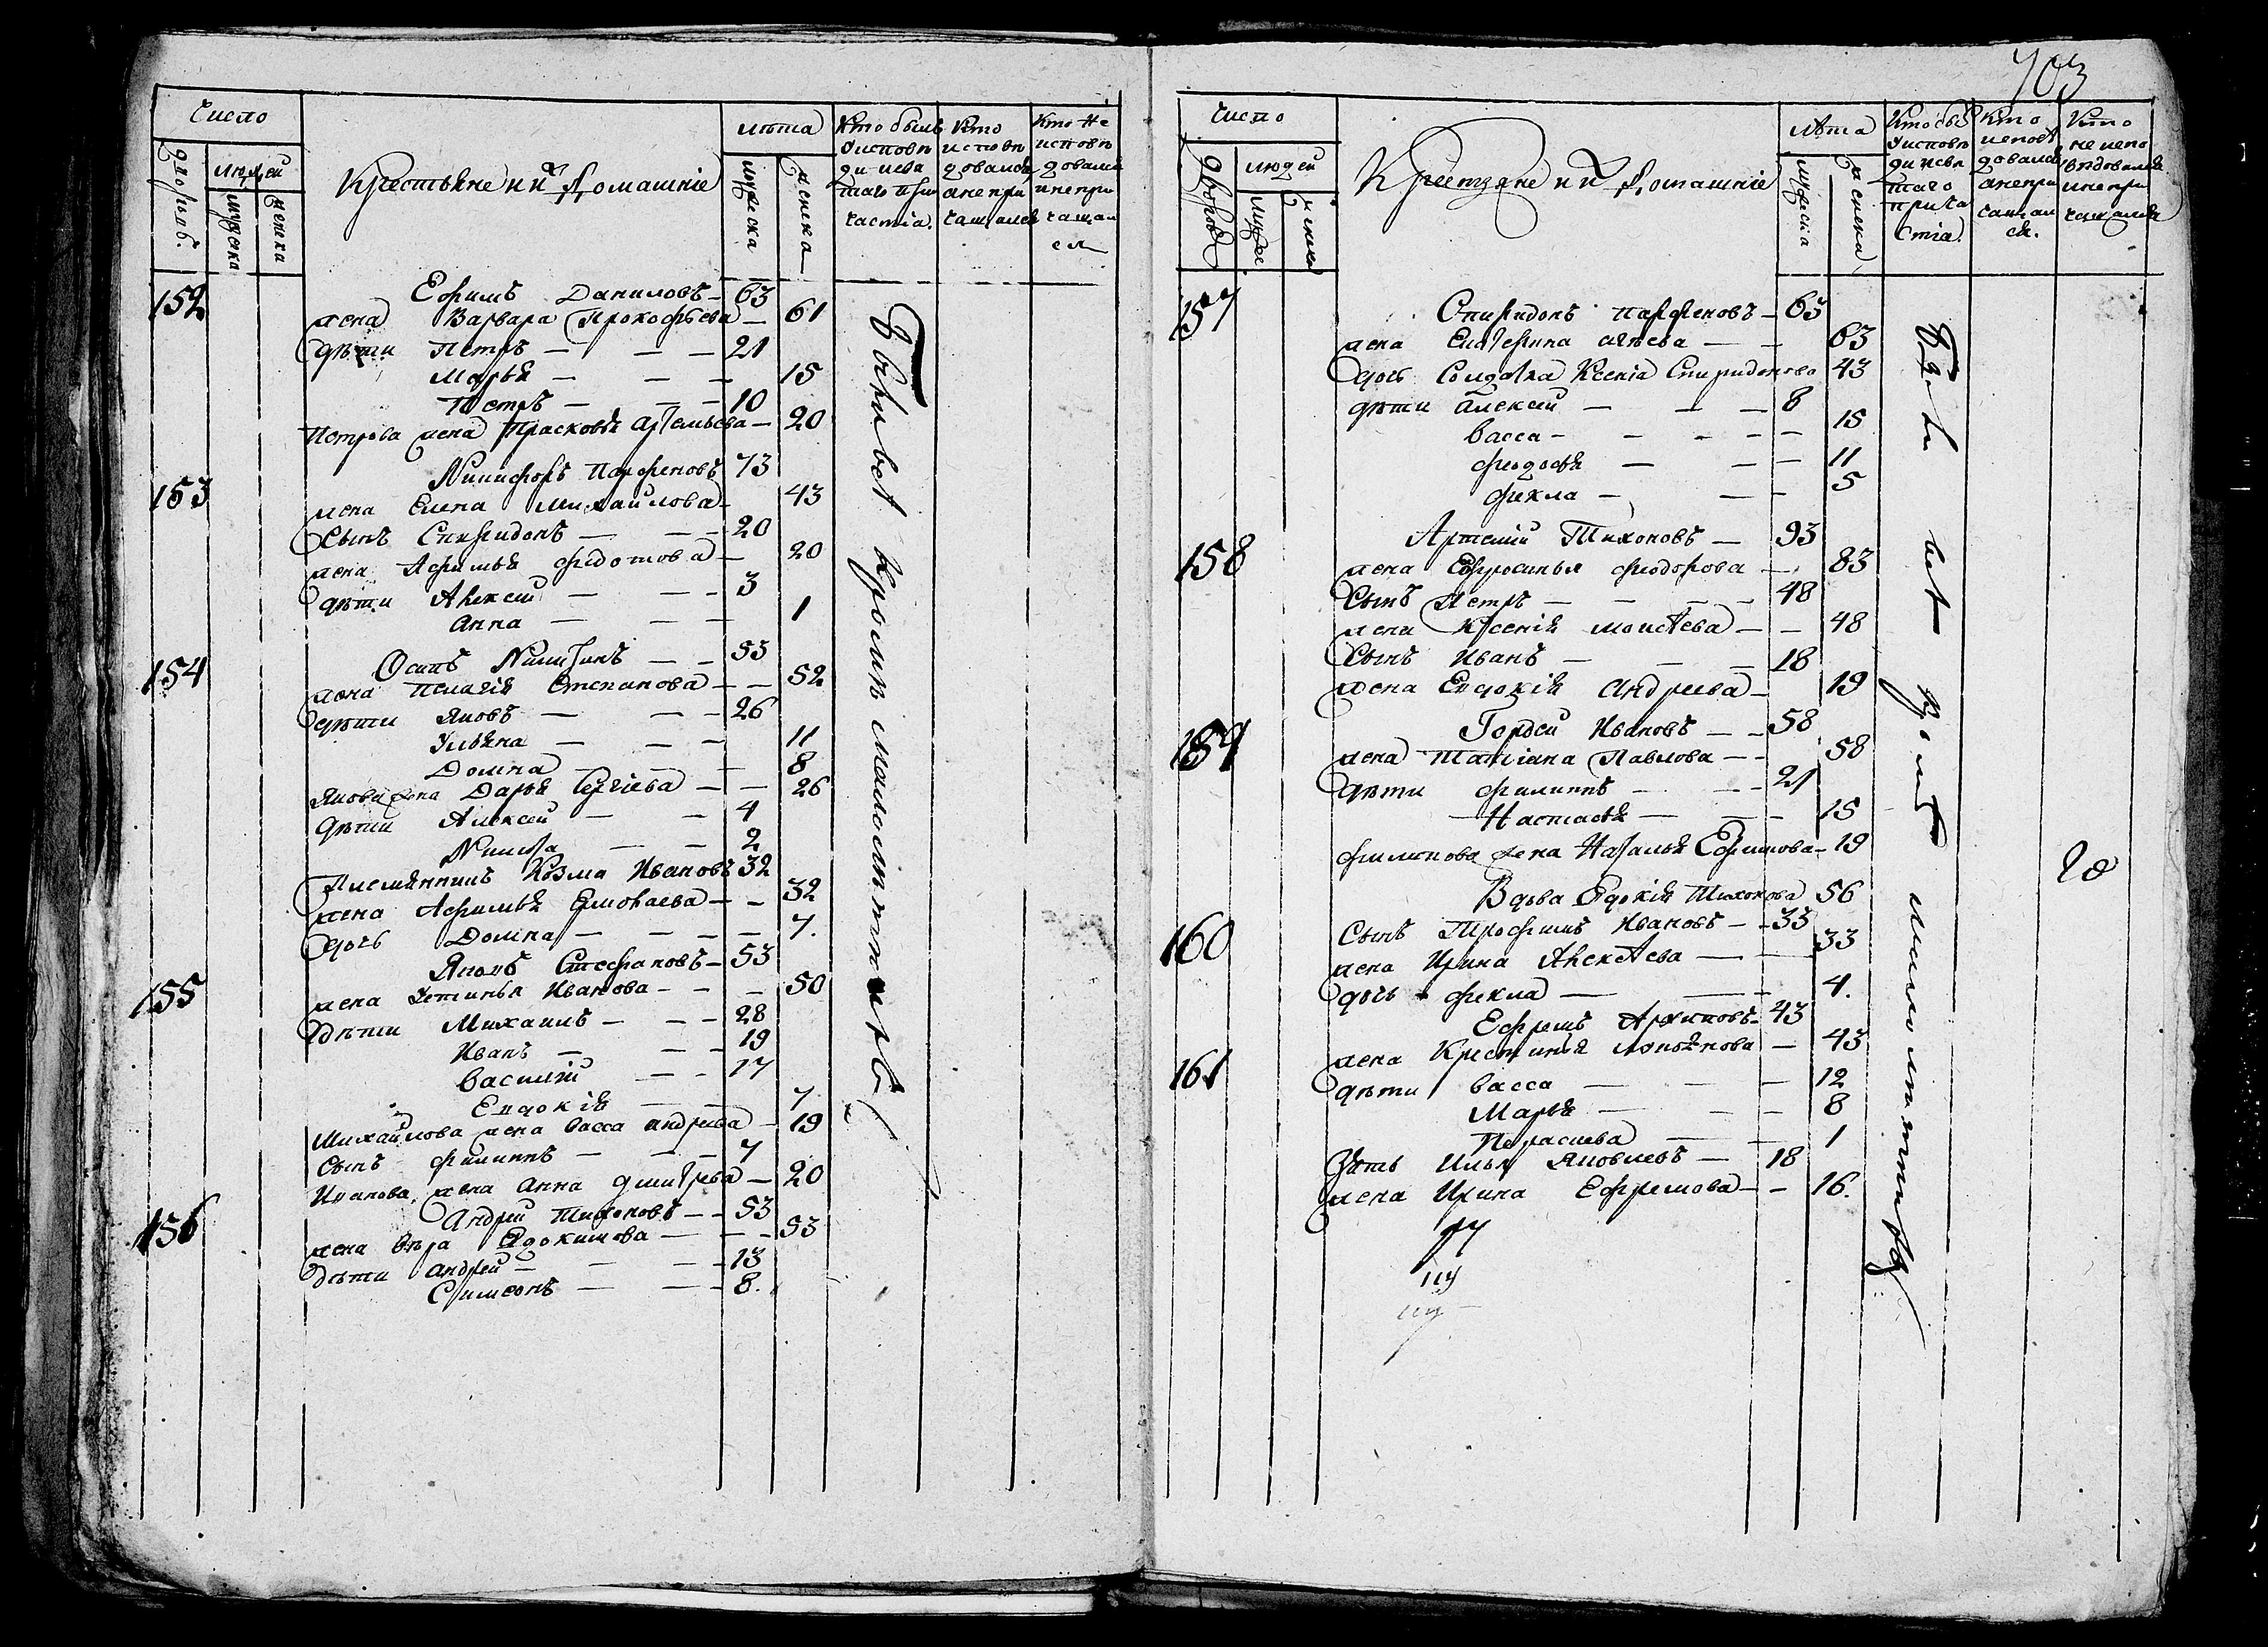 Число
дворовъ.
людей
мужеска
женска
Крестьяне и ихъ домашнiе
лѣта
мужеска
женска
Кто былъ
у исповѣ
ди и свя
таго при
частiя.
Кто
исповѣ
довался
а не при
чащался
Кто не
исповѣ
довался
и не при
чащал
ся
152 Ефимъ Даниловъ — 63
жена Варвара Прокофьева — 61
дѣти Петръ — — — 21
Марья — — — 15
Петръ — — — 10
Петрова жена Прасковья Артемьева — 20
153 Никифоръ Парфеновъ 73
жена Елена Михайлова — 43
Сынъ Спиридонъ — — — 20
жена Афимья Федотова — 20
дѣти Алексей — — — 3
Анна — — — 1
154 Осипъ Никитинъ — — 53
жена Пелагiя Степанова — — 52
дѣти Яковъ — — — 26
Ульяна — — — 11
Домна — — — 8
Якова жена Дарья Сергiева — — 26
дѣти Алексей — — 4
Никита — — 2
Племянникъ Козма Ивановъ 32
жена Афимья Ермолаева — — 32
дочь Домна — — — — 7.
155 Яковъ Стефановъ — 53
жена Устинья Иванова — — — 50
дѣти Михаилъ — — — 28
Иванъ — — — 19
Василiй — — 17
Евдокiя — — 7
Михайлова жена Васса Андреева — 19
Сынъ Филиппъ — — — 7
Иванова жена Анна Дмитрева — 20
156 Андрей Тихоновъ — — 53
жена Вѣра Евдокимова — — — 53
дѣти Андрей — — — 13
Симеонъ — — — 8.
Были всѣ кромѣ малолѣтныхъ
703
Число
дворовъ
людей
мужес
женска
Крестьяне и ихъ домашнiе
лѣта
мужеска
женска
Кто бы
у исповѣ
ди и свя
таго
прича
стiя.
Кто
исповѣ
довался
а не при
чащал
ся.
Кто
не испо
вѣдовался
и не при
чащался
157 Спиридонъ Парфеновъ — 63
жена Екатерина — — 63
дочь Солдатка Ксенiа Спиридонова 43
дѣти Алексей — — — 8
Васса — — — — — 15
Феодосья — — — 11
Фекла — — — 5
158 Артемiй Тихоновъ — 93
жена Ефросинья Феодорова — 83
Сынъ Петръ — — — — 48
жена Ксенiя Моисѣева — — 48
Сынъ Иванъ — — — 18
жена Евдокiя Андреева — 19
159 Гордей Ивановъ — — 58
жена Татiана Павлова — — 58
дѣти Филиппъ — — — 21
Настасья — — — 15
Филипова жена Наталья Ефимова — 19
160 Вдова Евдокiя Тихонова 56
Сынъ Трофимъ Ивановъ — — 33
жена Ирина Алексѣева — — 33
дочь Фекла — — — 4.
161 Ефремъ Архиповъ — 43
жена Крестинья — 43
дѣти Васса — — — 12
Марья — — — 8
Парасковa — — 1
Зять Илья Яковлевъ — 18
жена Ирина Ефремова — — 16.
Были всѣ кромѣ малолѣтныхъ